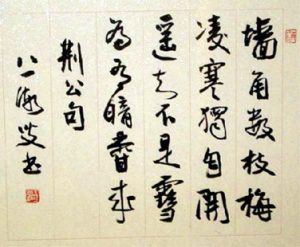 墙角数枝梅
凌寒獨自開
遥知不是雪
為有暗香来
荆公句
八一叟书